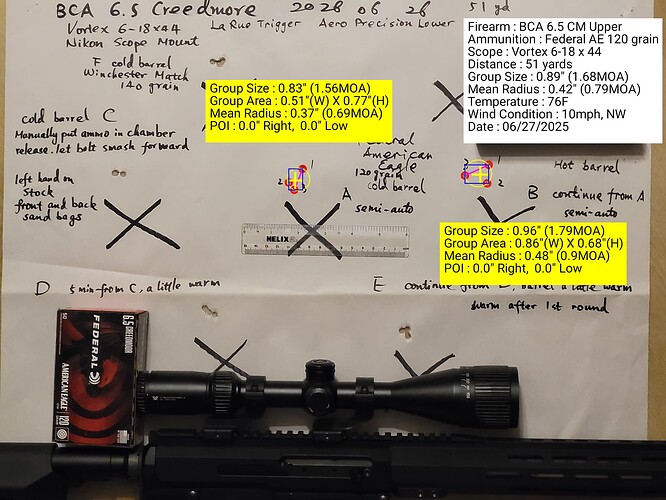 BCA 6.5 Creedmore 2025 06 28 51 yd
Vortex 6-18x44 La Rue Trigger Aero Precision Lower
Nikon Scope Mount
F cold barrel
Winchester Match
140 grain
Firearm : BCA 6.5 CM Upper
Ammunition : Federal AE 120 grain
Scope : Vortex 6-18 x 44
Distance : 51 yards
Group Size : 0.89" (1.68MOA)
Mean Radius : 0.42" (0.79MOA)
Temperature : 76F
Wind Condition : 10mph, NW
Date : 06/27/2025
Group Size : 0.83" (1.56MOA)
Group Area : 0.51"(W) X 0.77"(H)
Mean Radius : 0.37" (0.69MOA)
POI : 0.0" Right, 0.0" Low
cold barrel C
Manually put ammo in chamber
release. let bolt smash forward
left hand on
stock
front and back
sand bags
American
Eagle
120 grain
cold barrel
A
semi-auto
1
2
3
Hot barrel
B continue from A
semi-auto
1
2
3
HELIX
Group Size : 0.96" (1.79MOA)
Group Area : 0.86"(W) X 0.68"(H)
Mean Radius : 0.48" (0.9MOA)
POI : 0.0" Right, 0.0" Low
D 5 min from C, a little warm
E continue from
warm after 1st round
50
FEDERAL
AMERICAN EAGLE
6.5 CREEDMOOR
120